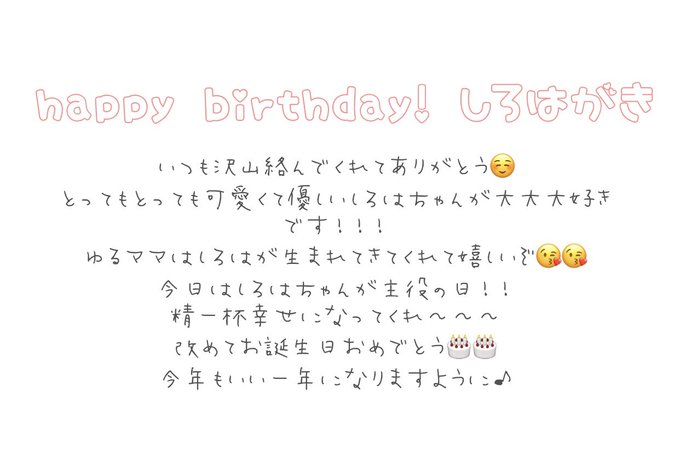 happy birthday! しろはがき
いつも沢山絡んでくれてありがとう☺️
とってもとっても可愛くて優しいしろはちゃんが大大大好き
です!!!
ゆるママはしろはが生まれてきてくれて嬉しいぞ😘😘
今日はしろはちゃんが主役の日!!
精一杯幸せになってくれ〜〜〜
改めてお誕生日おめでとう🎂🎂
今年もいい一年になりますように♪